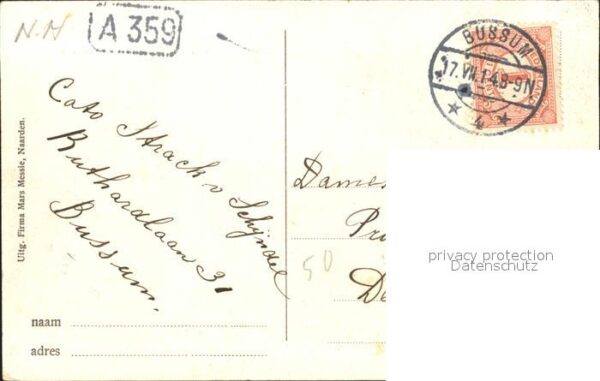 N.H
A 359
BUSSUM
17.VII.14.8-9N
4
Cato Strack v Schijndel
Ruthardlaan 31
Bussum.
Uitg. Firma Mars Messie, Naarden.
Dames
50
privacy protection
Datenschutz
naam
adres